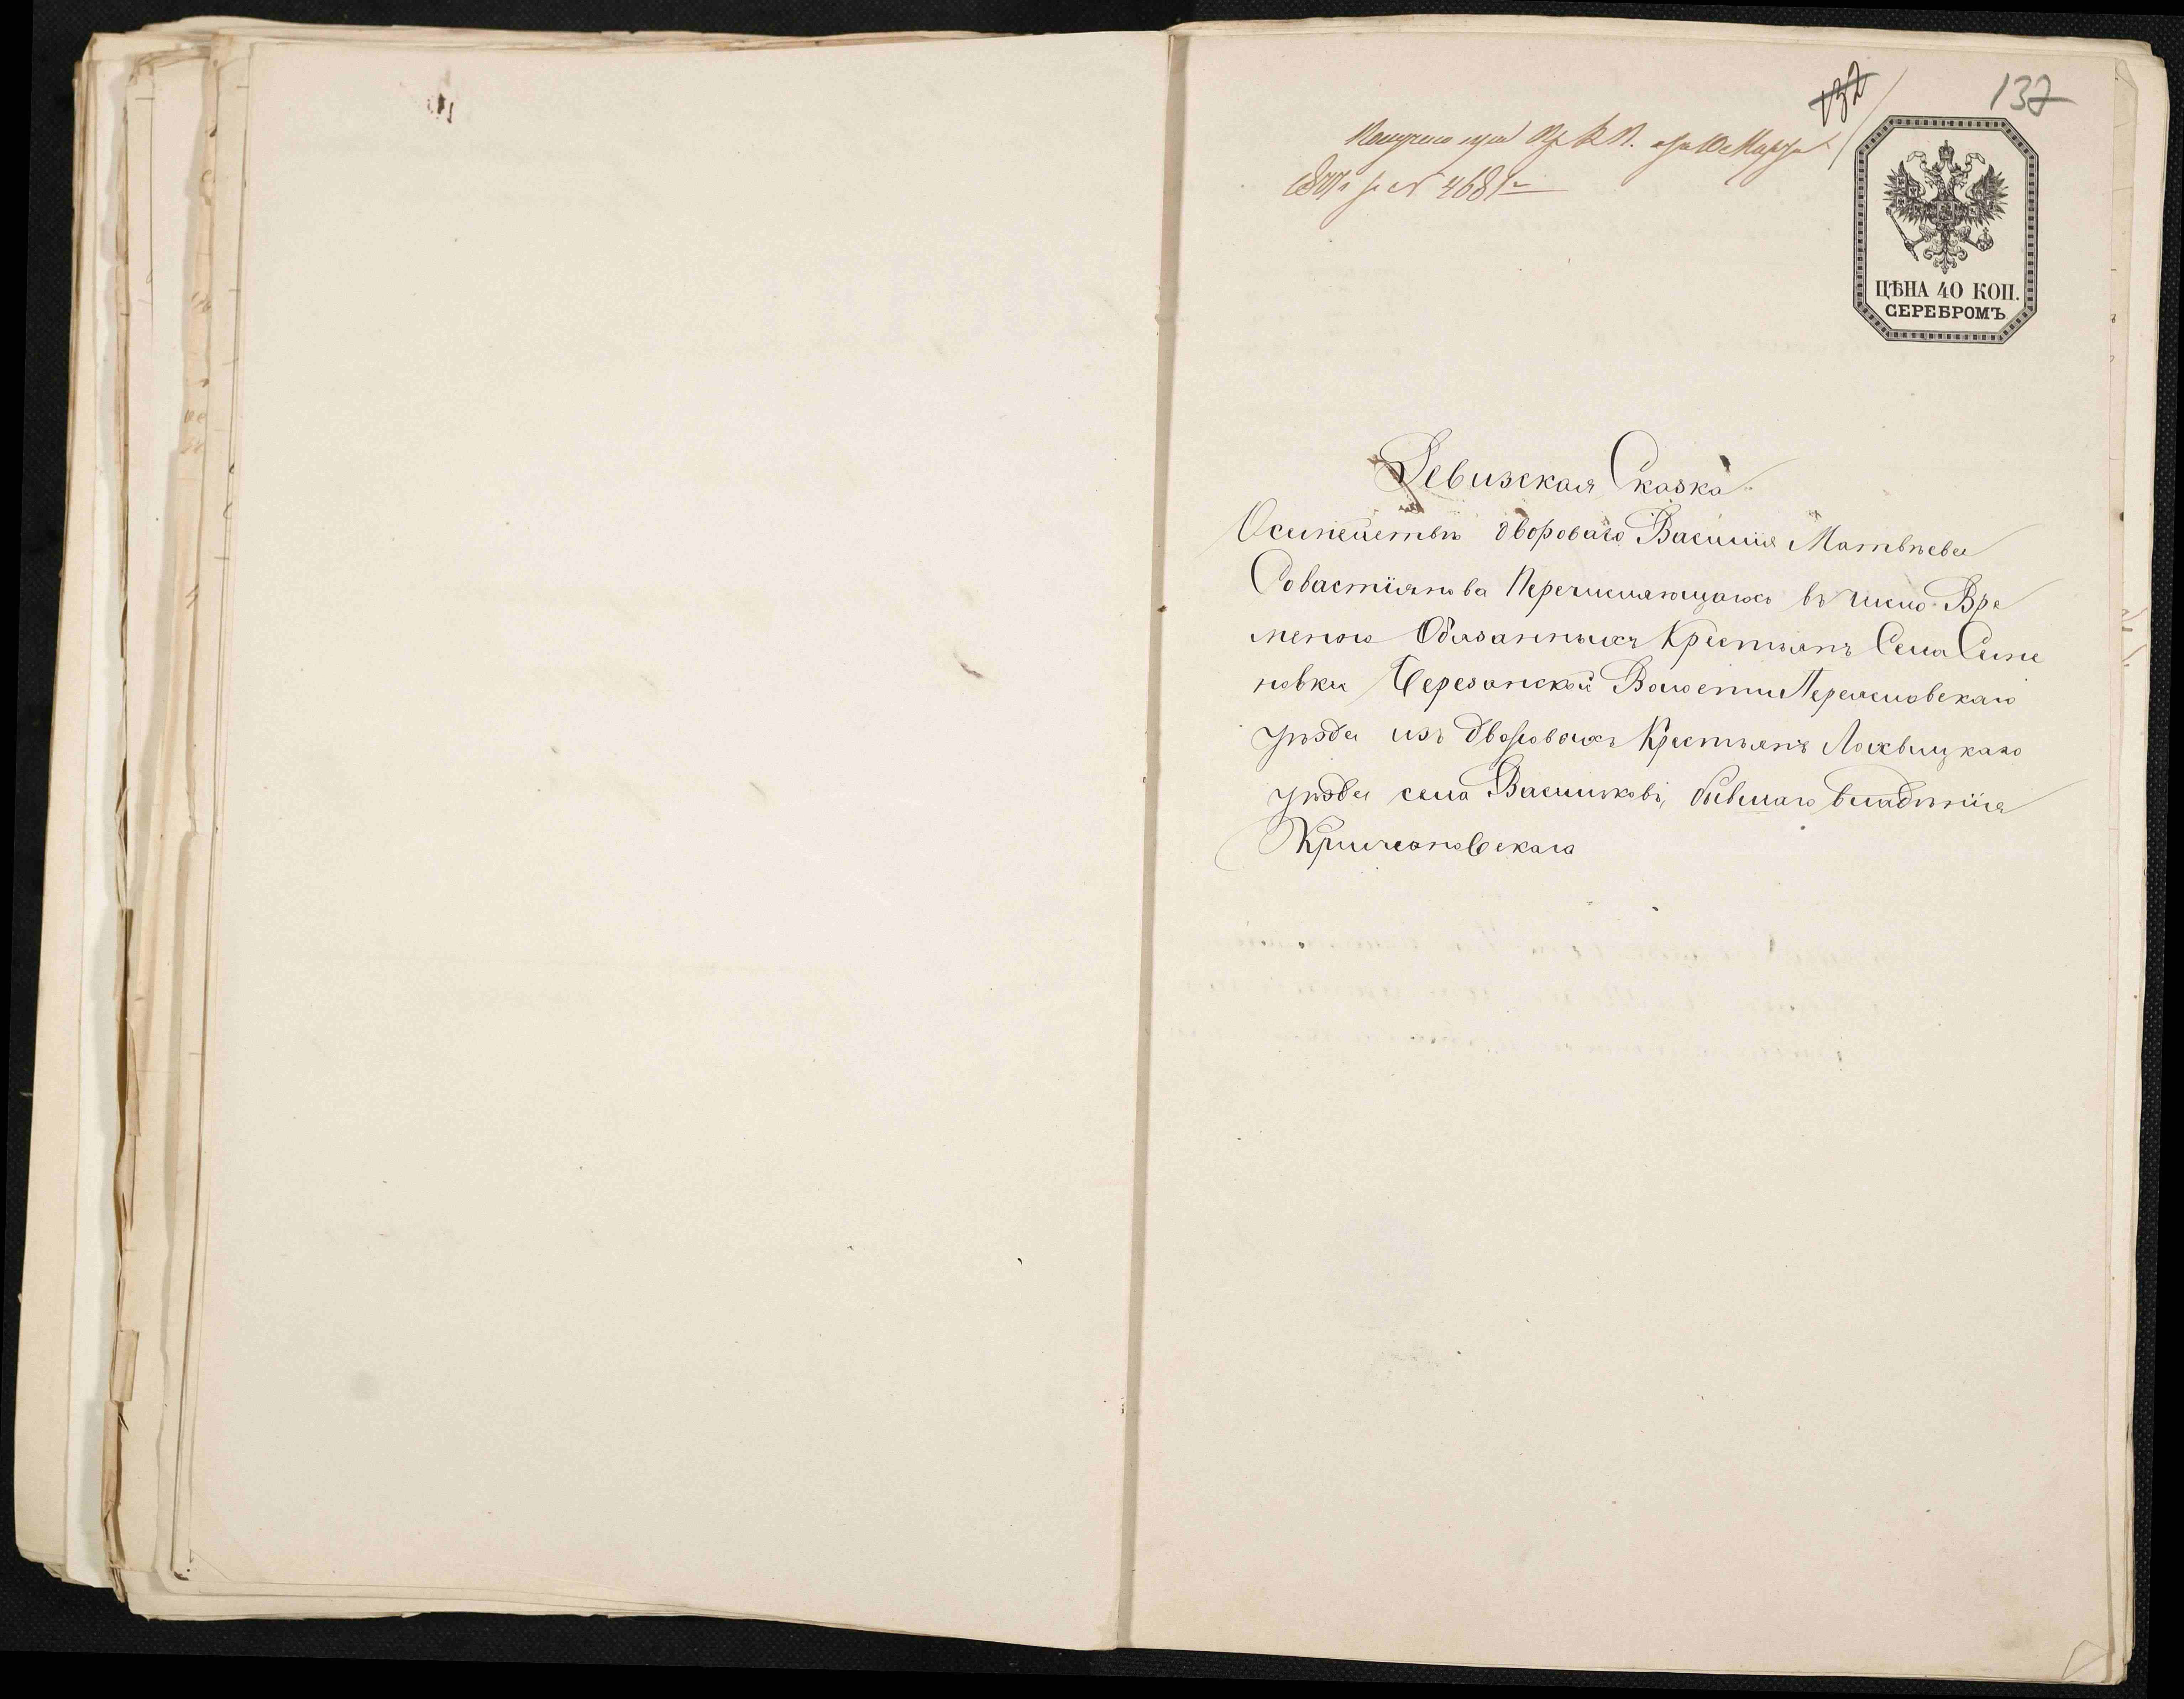 132
137
Получено при
1870 г. за N 4681
ЦѢНА 40 КОП.
СЕРЕБРОМЪ
Ревизская Сказка
О семействѣ двороваго Василія Матвѣева
Совастіянова Перечисляющагось въ число Вре
менно Обязанныхъ Крестьянъ Села Семе
новки Березанской Волости Переяславскаго
уѣзда изъ дворовыхъ Крестьянъ Лохвицкаго
уѣзда села Васильковъ, бывшаго владѣнія